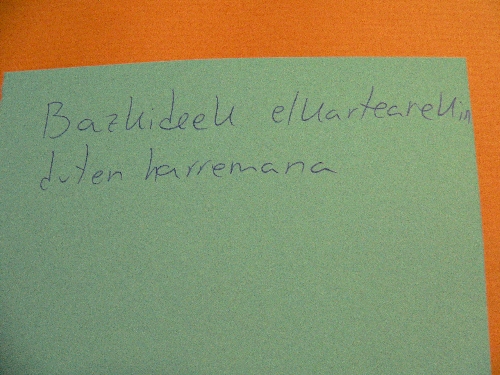 Bazkideek elkartearekin
duten harremana